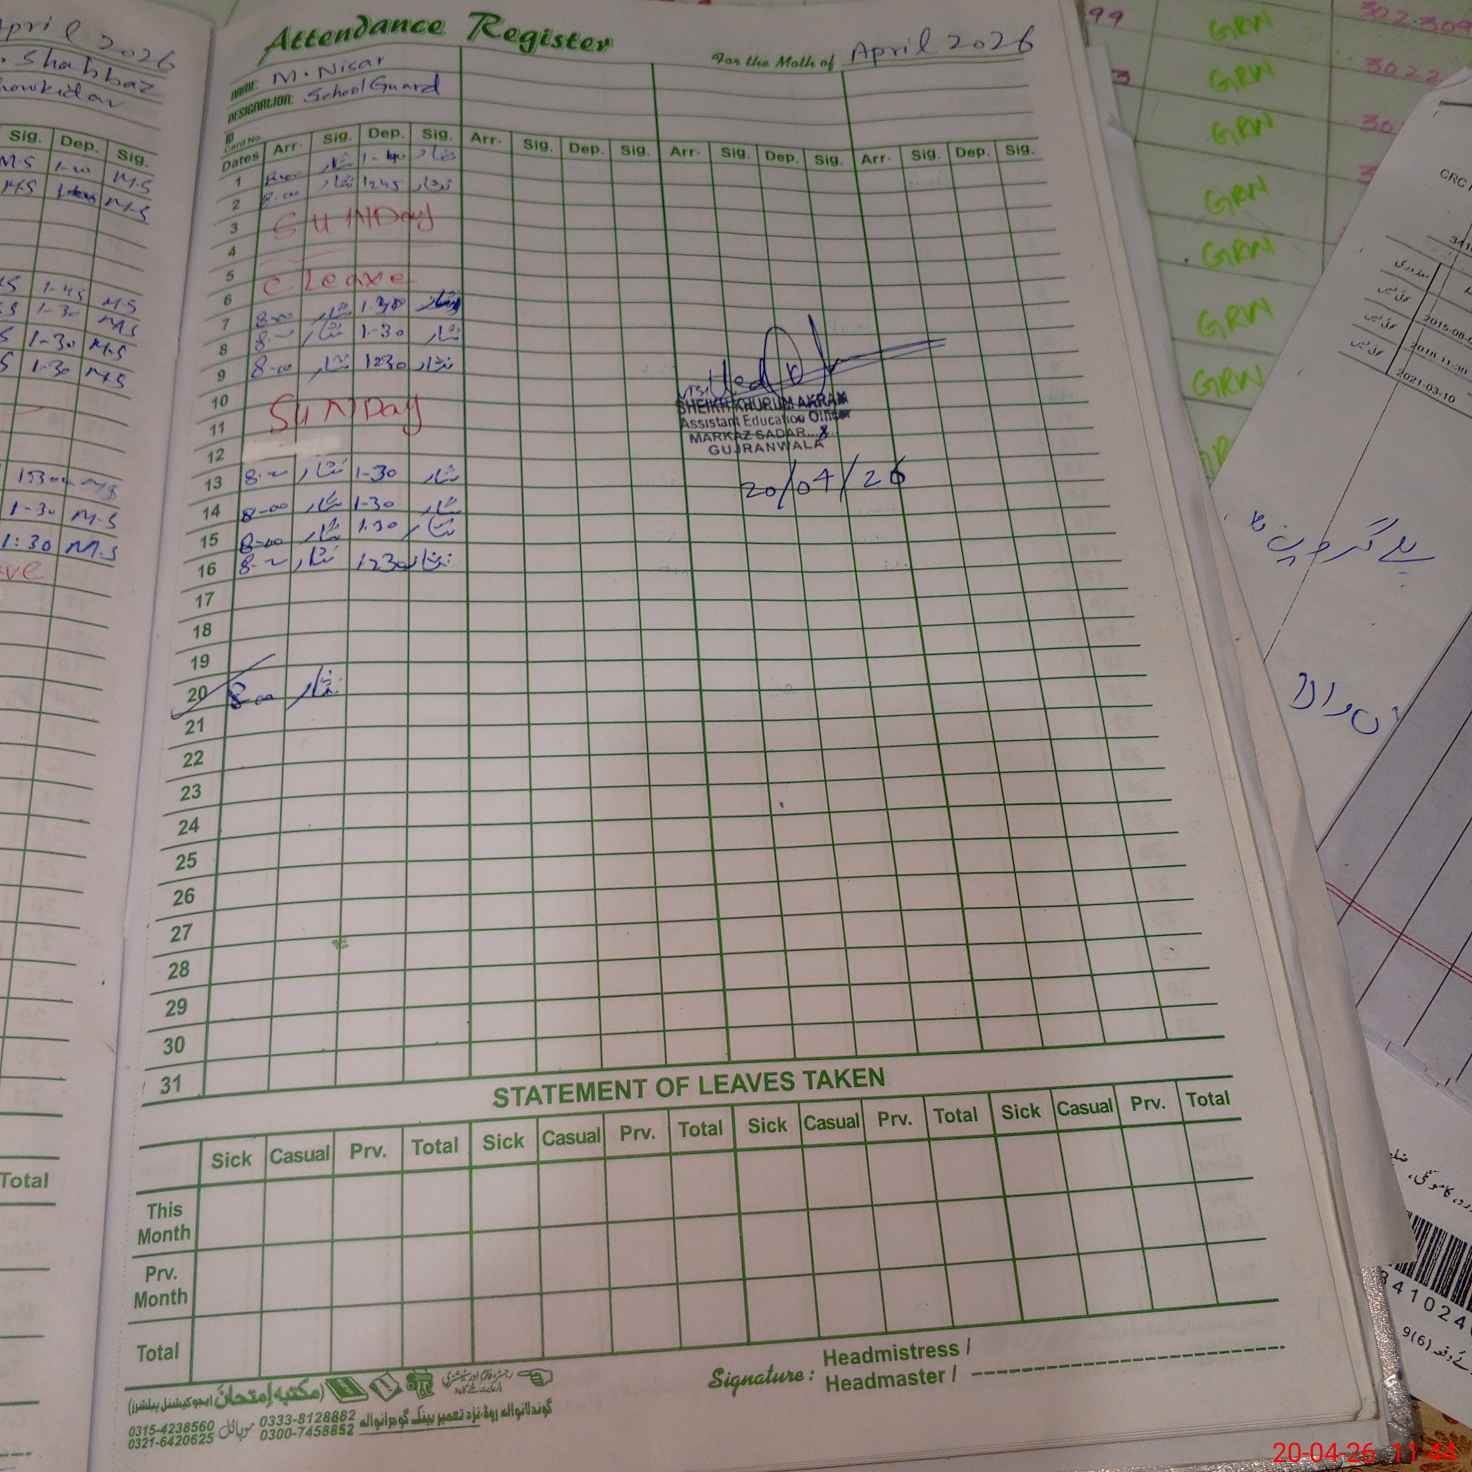 April 2026
Shahbaz
Sig. Dep. Sig.
M.S M.S
M.S M.S
1-45 M.S
1-30 M.S
1-30 M.S
1-30 M.S
1-30 M.S
1:30 M.S
Total
Attendance Register
For the Moth of April 2026
NAME: M. Nisar
DESIGNATION: School Guard
ID Card No.
Dates Arr. Sig. Dep. Sig. Arr. Sig. Dep. Sig. Arr. Sig. Dep. Sig. Arr. Sig. Dep. Sig.
1 8-00 نثار 1-40 نثار
2 8-00 نثار 1245 نثار
3 SUNDay
4
5 C. Leave
6
7 8-00 نثار 1-30 نثار
8 8-00 نثار 1-30 نثار
9 8-00 نثار 1230 نثار
10
11 SUNDay
12
13 8-00 نثار 1-30 نثار
14 8-00 نثار 1-30 نثار
15 8-00 نثار 1-30 نثار
16 8-00 نثار 1230 نثار
17
18
19
20 8-00 نثار
21
22
23
24
25
26
27
28
29
30
31
SHEIKH KHURUM AKRAM
Assistant Education Officer
MARKAZ SADAR
GUJRANWALA
20/04/26
STATEMENT OF LEAVES TAKEN
Sick Casual Prv. Total Sick Casual Prv. Total Sick Casual Prv. Total Sick Casual Prv. Total
This Month
Prv. Month
Total
Signature: Headmistress / Headmaster /
مکتبہ امتحان (ایجوکیشنل پبلشرز)
گوندلانوالہ روڈ نزد تعمیر بینک گوجرانوالہ
0333-8128882 موبائل 0315-4238560
0300-7458852 0321-6420625
99 GRW 302.309
GRW 3022
GRW 30
GRW
GRW
GRW
GRW
2021-03-10
841024
9(6)
20-04-26 11:44